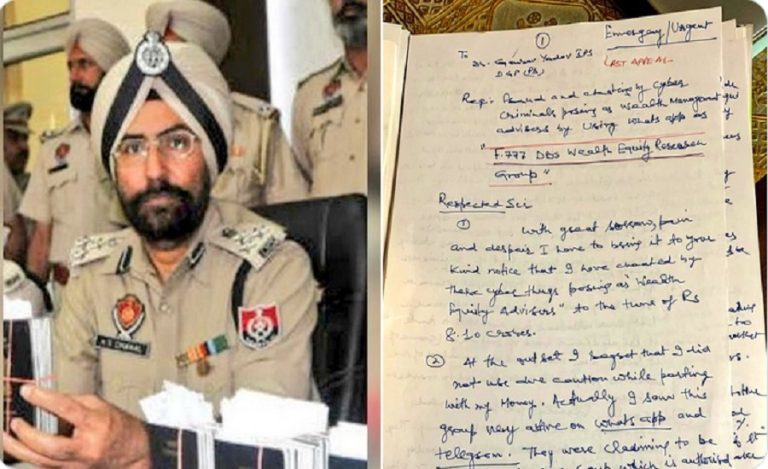 A S CHAHAL
①
Emergency/Urgent
To Dr. Gaurav Yadav IPS
LAST APPEAL
DGP (Pb)
Rep: Fraud and cheating by Cyber
Criminals posing as Wealth Management
advisers by Using Whats app as
"F.777 DBS Wealth Equity Research
Group"
Respected Sir
①
With great sorrow, pain
and despair I have to bring it to your
Kind notice that I have cheated by
these cyber thugs posing as "Wealth
Equity Advisors" to the tune of Rs
8.10 crores.
②
At the outset I regret that I did
not use due caution while parting
with my Money. Actually I saw this
group very active on whats app and
telegram. They were claiming to be
which is authorised